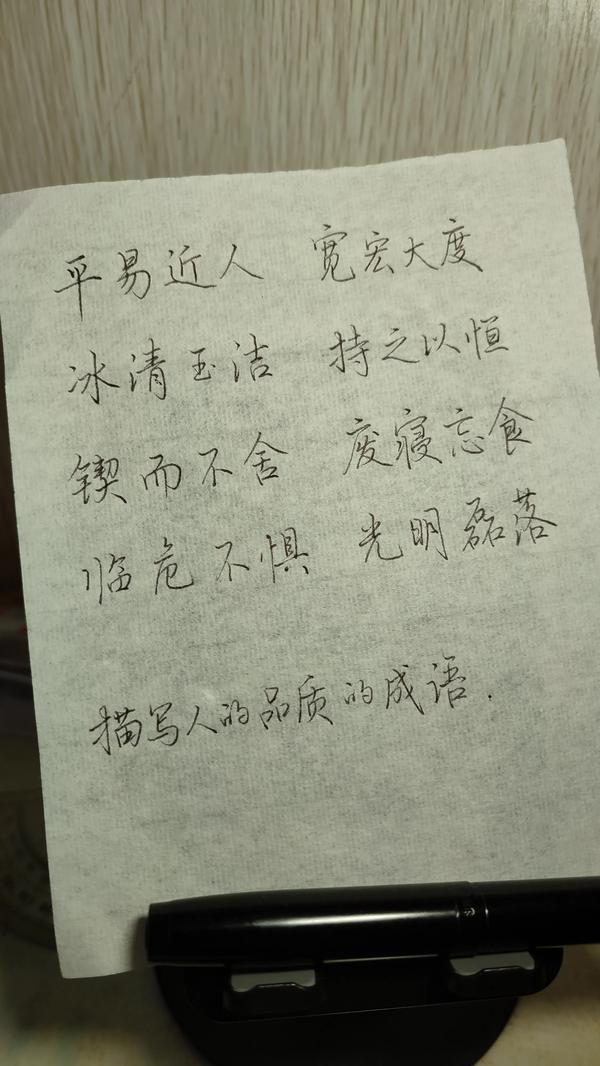 平易近人 宽宏大度
冰清玉洁 持之以恒
锲而不舍 废寝忘食
临危不惧 光明磊落
描写人的品质的成语.